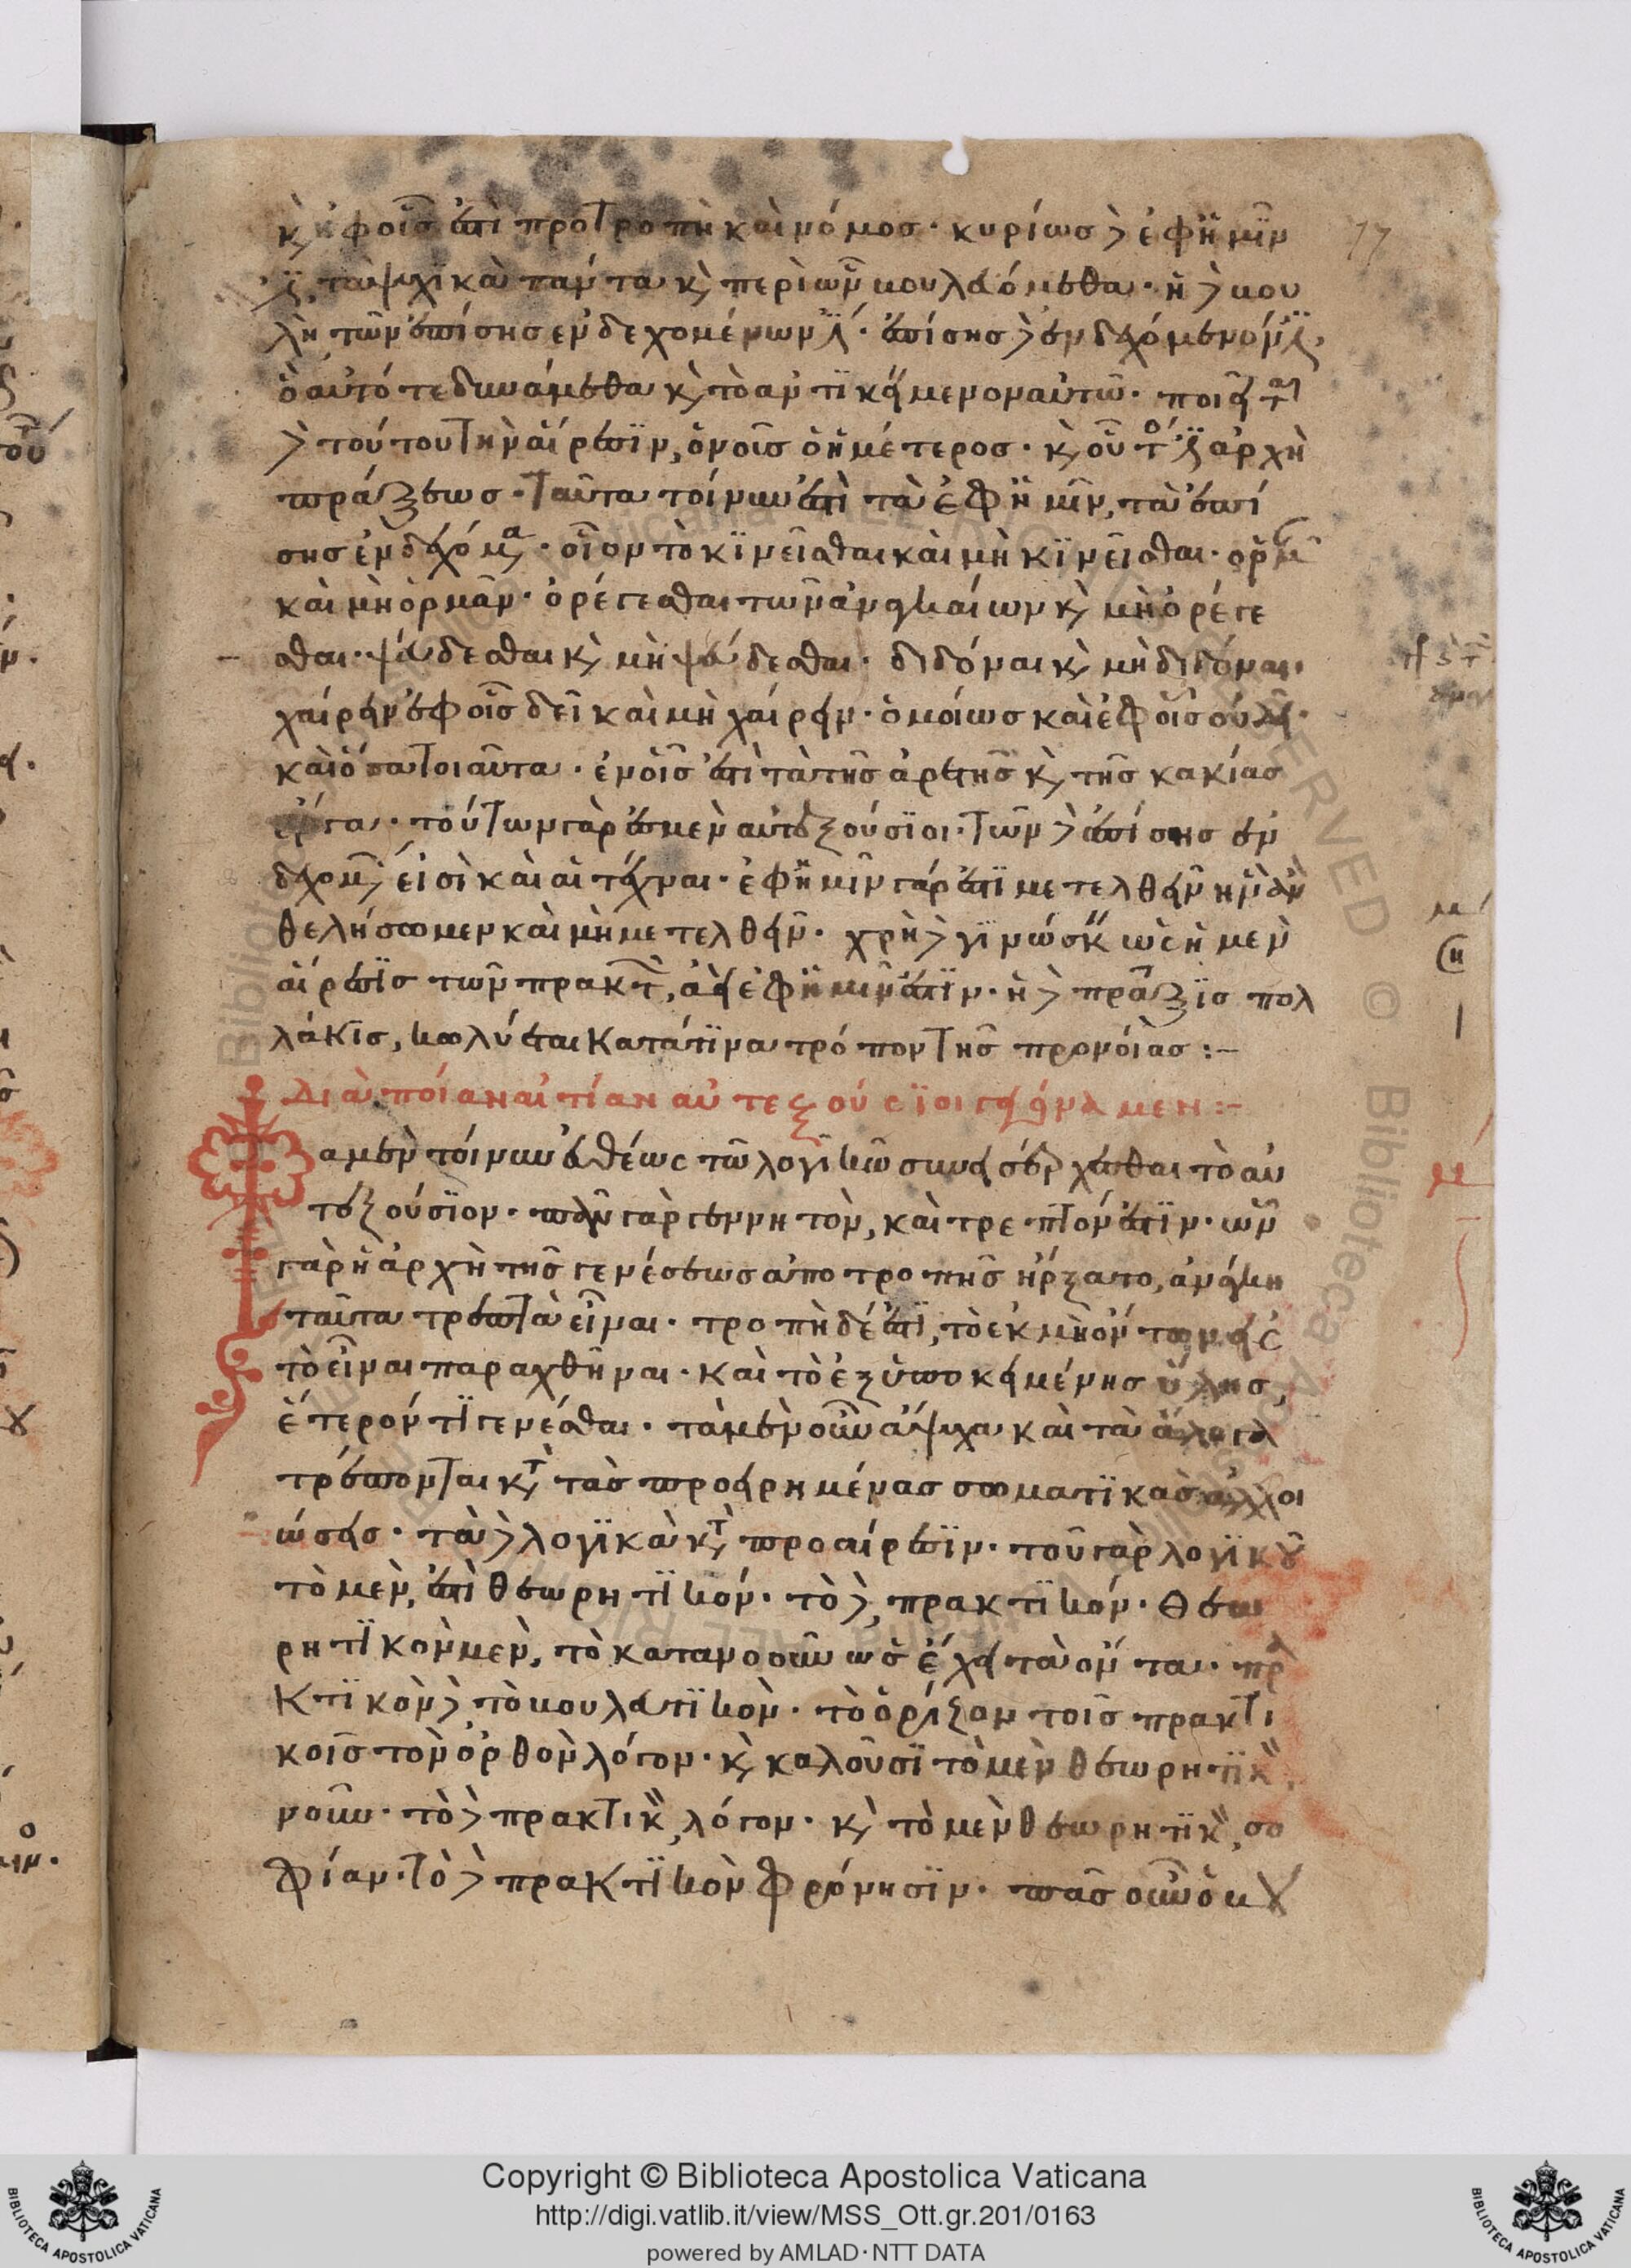 κ ἐφ οἷς ἐστὶ προτροπὴ καὶ νόμοσ· κυρίωσ δὲ ἐφ ἡμῖν
ἐστι τὰ ψυχϊκὰ πάντα κ περὶ ὧν βουλευόμεθα· ἡ δὲ βου
λὴ τῶν ἐπίσησ ἐνδεχομένων ἐστί· ἐπίσησ δὲ ἐνδεχόμενόν ἐστι
ὃ αὐτό τε δυνάμεθα κ τὸ ἀντϊκείμενον αὐτῶ· ποιεῖται
δὲ τούτου τὴν αἵρεσϊν, ὁ νοῦς ὁ ἡμέτεροσ· κ οὗτός ἐστιν ἀρχὴ
πράξεωσ· ταῦτα τοίνυν ἐστὶ τὰ ἐφ ἡμῖν, τὰ ἐπί
σησ ἐνδεχόμενα· οἷον τὸ κϊνεῖσθαι καὶ μὴ κϊνεῖσθαι· ὁρμᾶν
καὶ μὴ ὁρμᾶν· ὀρέγεσθαι τῶν ἀναγκαίων κ μὴ ὀρέγε
σθαι· ψεύδεσθαι κ μὴ ψεύδεσθαι· διδόναι κ μὴ διδόναι·
χαίρειν ἐφ οἷς δεῖ καὶ μὴ χαίρειν· ὁμοίωσ καὶ ἐφ οἷς οὐ δεῖ·
καὶ ὅσα τοιαῦτα· ἐν οἷς ἐστὶ τὰ τῆς ἀρετῆς κ τῆς κακίασ
ἔργα· τούτων γὰρ ἐσμεν αὐτεξούσϊοι· τῶν δὲ ἐπίσησ ἐν
δεχομένων εἰσὶ καὶ αἱ τέχναι· ἐφ ἡμῖν γάρ ἐστϊ μετελθεῖν ἣν ἂν
θελήσωμεν καὶ μὴ μετελθεῖν· χρὴ δὲ γϊνώσκειν ὡς ἡ μὲν
αἵρεσϊσ τῶν πρακτῶν, ἀεὶ ἐφ ἡμῖν ἐστϊν· ἡ δὲ πρᾶξϊσ πολ
λάκϊσ, κωλύεται κατά τϊνα τρόπον τῆς προνοίασ:-
Διὰ ποίαν αἰτίαν αὐτεξούσϊοι γεγόναμεν:-
αμὲν τοίνυν εὐθέως τῶ λογϊκῶ συνεισέρχεσθαι τὸ αὐ
τεξούσϊον· πᾶν γὰρ γεννητὸν, καὶ τρεπτόν ἐστϊν· ὧν
γὰρ ἡ ἀρχὴ τῆς γενέσεωσ ἀπο τροπῆς ἤρξατο, ἀνάγκη
ταῦτα τρεπτὰ εἶναι· τροπὴ δέ ἐστϊ, τὸ ἐκ μὴ ὄντων εἰς
τὸ εἶναι παραχθῆναι· καὶ τὸ ἐξ ὑποκειμένησ ὕλησ,
ἕτερόν τϊ γενέσθαι· τὰ μὲν οὖν ἄψυχα καὶ τὰ ἄλογα
τρέπονται κατὰ τὰσ προειρημένασ σωματϊκὰσ ἀλλοι
ώσεισ· τὰ δὲ λογϊκὰ κατὰ προαίρεσϊν· τοῦ γὰρ λογϊκοῦ
τὸ μὲν, ἐστὶ θεωρητϊκόν· τὸ δὲ, πρακτϊκόν· θεω
ρητϊκὸν μὲν, τὸ κατανοοῦν ὡς ἔχει τὰ ὄντα· πρα
κτϊκὸν δὲ τὸ βουλευτϊκὸν· τὸ ὁρίζον τοῖς πρακτι
κοῖς τὸν ὀρθὸν λόγον· κ καλοῦσϊ τὸ μὲν θεωρητϊκὸν,
νοῦν· τὸ δὲ πρακτικὸν, λόγον· κ τὸ μὲν θεωρητϊκὸν, σο
φίαν· τὸ δὲ πρακτϊκὸν φρόνησϊν· πᾶς οὖν ὁ βου
Copyright © Biblioteca Apostolica Vaticana
http://digi.vatlib.it/view/MSS_Ott.gr.201/0163
powered by AMLAD·NTT DATA